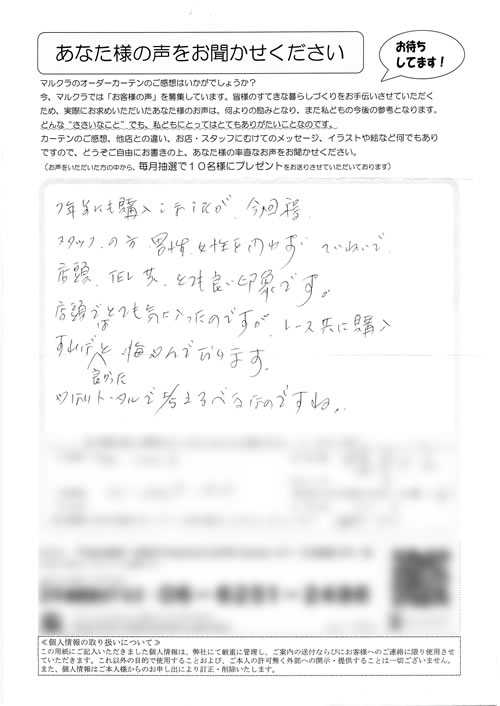 あなた様の声をお聞かせください
お待ち
してます！
マルクラのオーダーカーテンのご感想はいかがでしょうか？
今、マルクラでは「お客様の声」を募集しています。皆様のすてきな暮らしづくりをお手伝いさせていただく
ため、実際にお求めいただいたあなた様のお声は、何よりの励みとなり、また私どもの今後の参考となります。
どんな“ささいなこと”でも、私どもにとってはとてもありがたいことなのです。
カーテンのご感想、他店との違い、お店・スタッフにむけてのメッセージ、イラストや絵など何でもあり
ですので、どうぞご自由にお書きの上、あなた様の率直なお声をお聞かせください。
（お声をいただいた方の中から、毎月抽選で１０名様にプレゼントをお送りさせていただいております）
7年前にも購入しましたが、今回
スタッフの方 男性、女性を問わず ていねいで
店頭、TEL共、とても良い印象です。
店頭ではとても気に入ったのですが、レース共に購入
すればと 悔やんでおります。
良かった
トータルで考えるべきなのですね。
06-6251-2486
≪個人情報の取り扱いについて≫
この用紙にご記入いただきました個人情報は、弊社にて厳重に管理し、ご案内の送付ならびにお客様へのご連絡に限り使用させ
ていただきます。これ以外の目的で使用することおよび、ご本人の許可無く外部への開示・提供することは一切ございません。
また、個人情報はご本人様からのお申し出により訂正・削除いたします。